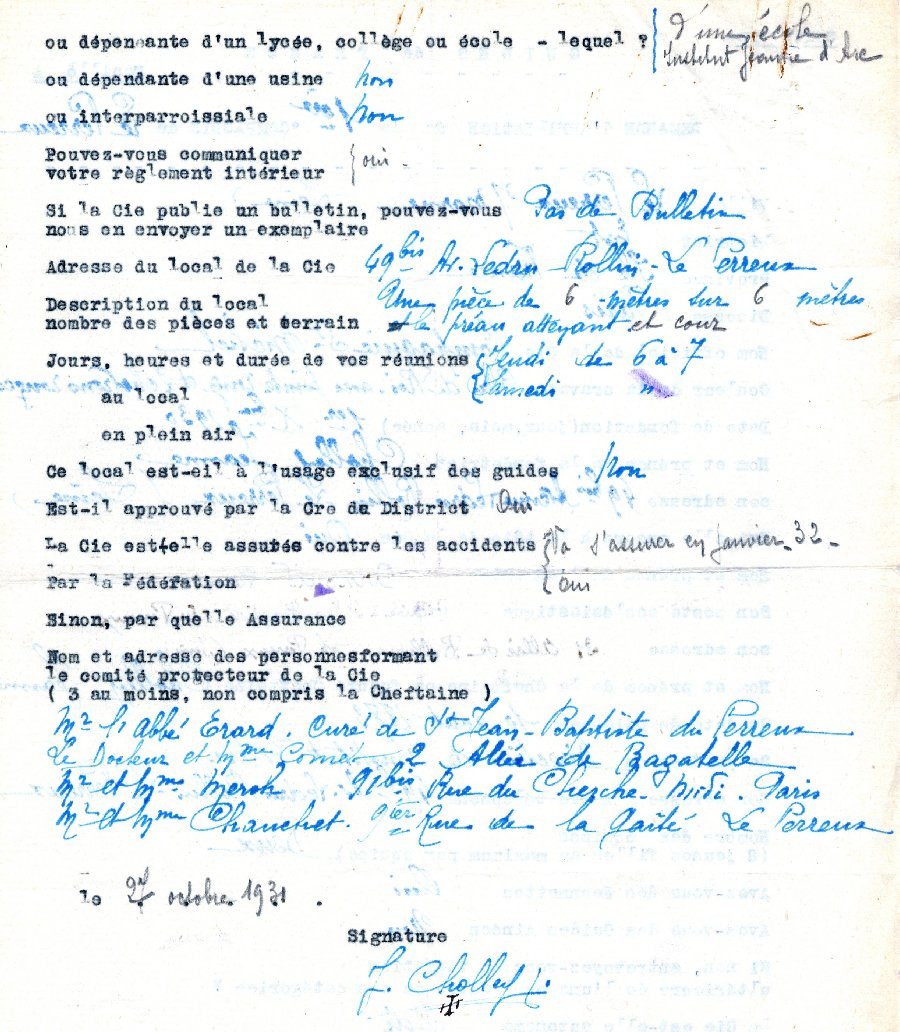 ou dépendante d'un lycée, collège ou école - lequel ? d'une école
Institut Jeanne d'Arc
ou dépendante d'une usine non
ou interparroissiale non
Pouvez-vous communiquer
votre règlement intérieur oui -
Si la Cie publie un bulletin, pouvez-vous Pas de Bulletin
nous en envoyer un exemplaire
Adresse du local de la Cie 49 bis Av. Ledru-Rollin - Le Perreux
Description du local Une pièce de 6 mètres sur 6 mètres
nombre des pièces et terrain et le préau attenant et cour
Jours, heures et durée de vos réunions Jeudi de 6 à 7
Samedi "
au local
en plein air
Ce local est-eil à l'usage exclusif des guides non
Est-il approuvé par la Cre du District Oui
La Cie est-elle assurée contre les accidents Va s'assurer en Janvier - 32 -
Par la Fédération oui
Sinon, par quelle Assurance
Nom et adresse des personnesformant
le comité protecteur de la Cie
( 3 au moins, non compris la Cheftaine )
Mr l'Abbé Erard . curé de St Jean-Baptiste du Perreux
Le Docteur et Mme 2 Allée de Bagatelle
Mr et Mme Mersch 91 bis Rue du Cherche Midi . Paris
Mr et Mme Chauchet . 9 ter Rue de la Gaité Le Perreux
le 27 octobre 1931 .
Signature
J. Chollet